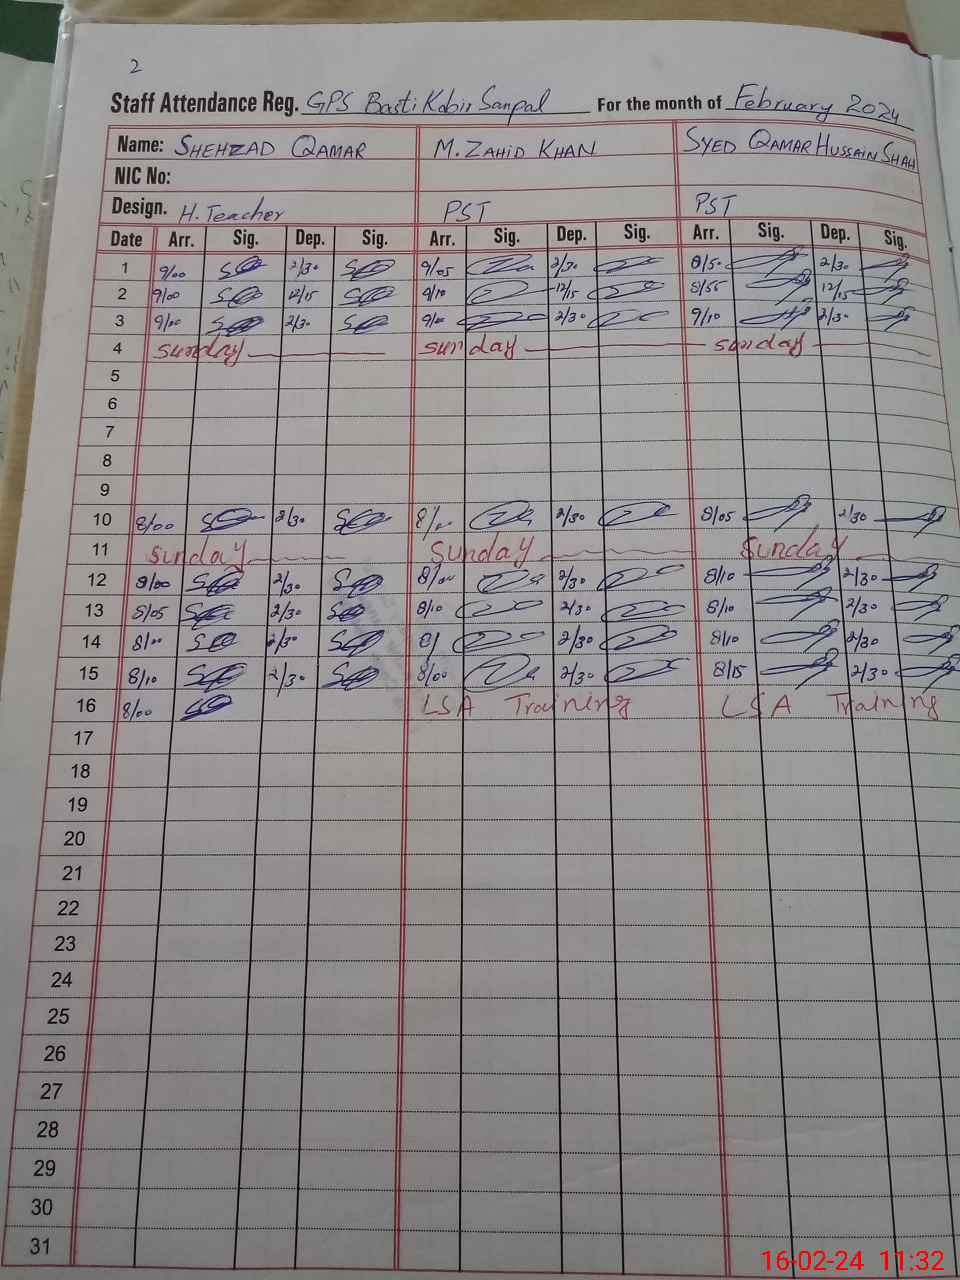 2
Staff Attendance Reg. GPS Basti Kabir Sanpal For the month of February 2024
Name: SHEHZAD QAMAR M. ZAHID KHAN SYED QAMAR HUSSAIN SHAH
NIC No:
Design. H. Teacher PST PST
Date Arr. Sig. Dep. Sig. Arr. Sig. Dep. Sig. Arr. Sig. Dep. Sig.
1 9/00 2/30 9/05 2/30 8/50 2/30
2 9/00 12/15 9/10 12/15 8/55 12/15
3 9/00 2/30 9/00 2/30 9/10 2/30
4 Sunday Sunday Sunday
5
6
7
8
9
10 8/00 2/30 8/00 2/30 8/05 2/30
11 Sunday Sunday Sunday
12 8/00 2/30 8/00 2/30 8/10 2/30
13 8/05 2/30 8/10 2/30 8/10 2/30
14 8/00 2/30 8/ 2/30 8/10 2/30
15 8/10 2/30 8/00 2/30 8/15 2/30
16 8/00 LSA Training LSA Training
17
18
19
20
21
22
23
24
25
26
27
28
29
30
31
16-02-24 11:32